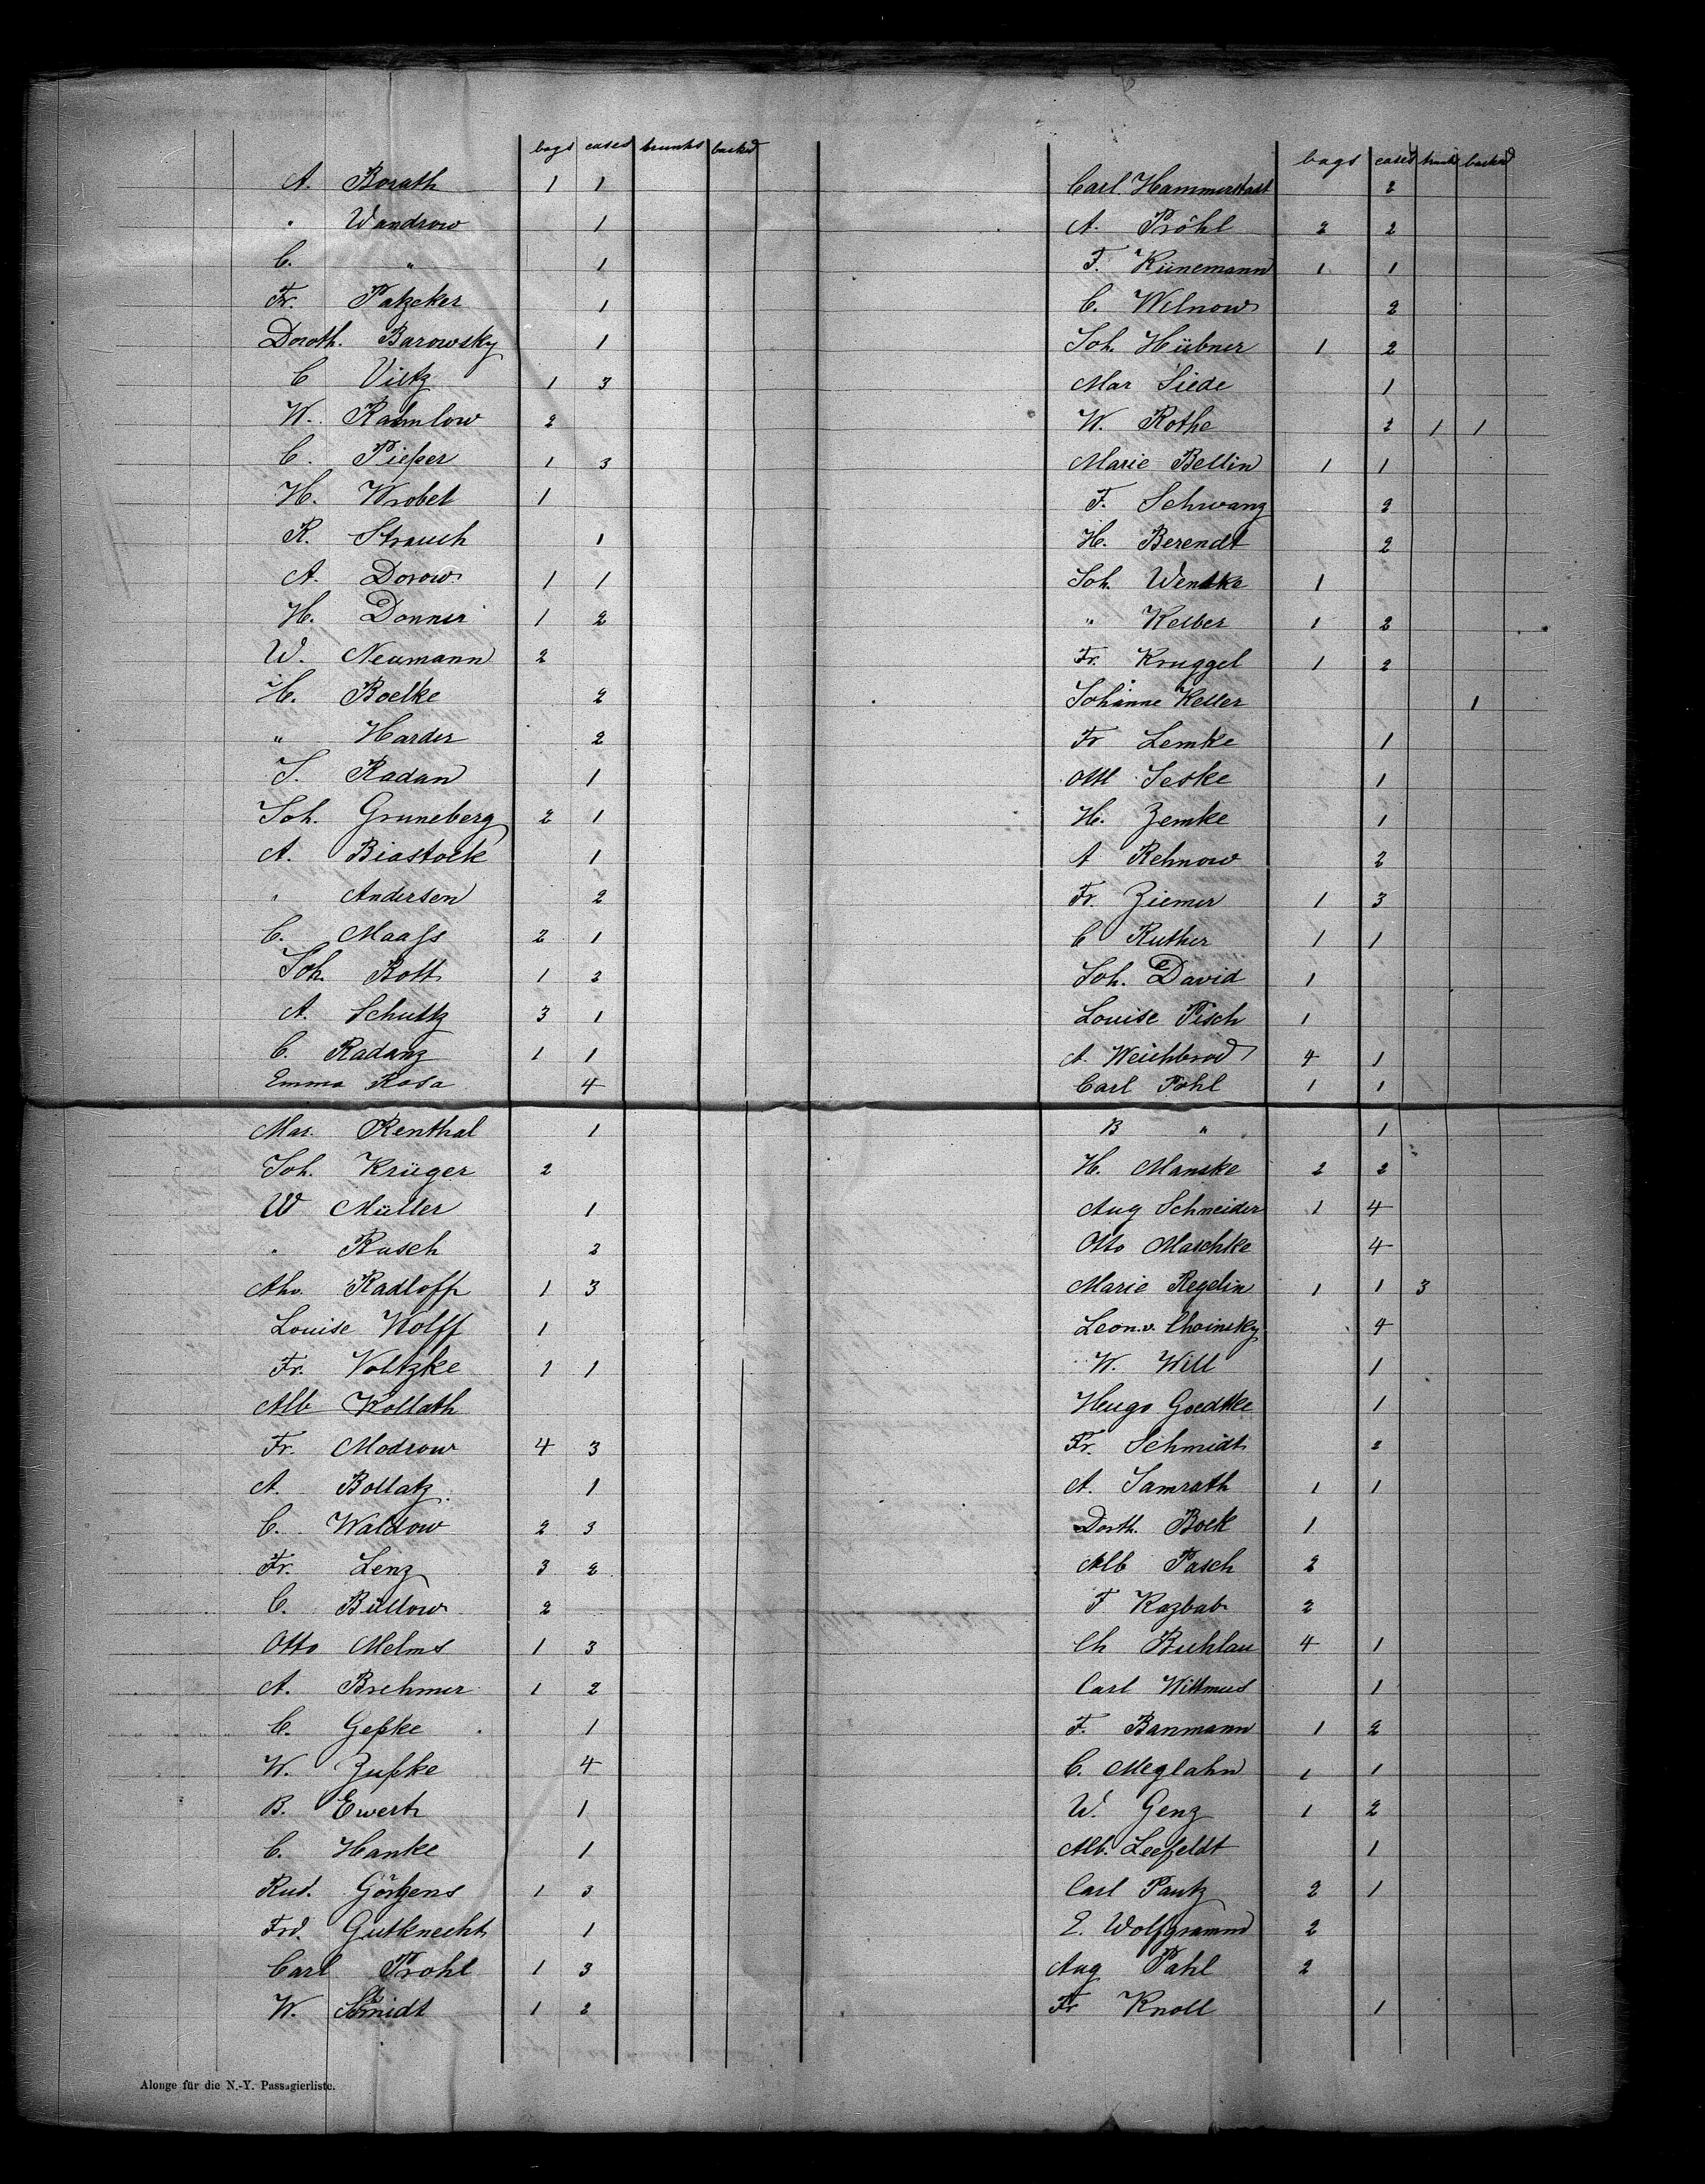 bags cases trunks basked
A. Borath 1 1
" Wandrow 1
C. " 1
Fr. Patzcker 1
Doroth. Barowsky 1
C Vietz 1 3
W. Ramlow 2
C. Pieper 1 3
H. Wrobel 1
R. Strauch 1
A. Dorow 1 1
H. Donner 1 2
W. Neumann 2
H. Boelke 2
" Harder 2
J. Radan 1
Joh. Gruneberg 2 1
A. Biastock 1
" Andersen 2
C. Maass 2 1
Joh. Bott 1 2
A. Schultz 3 1
C. Radanz 1 1
Emma Rosa 4
Mar. Renthal 1
Joh. Krüger 2
W Müller 1
" Busch 2
Radloff 1 3
Louise Wolff 1
Fr. Voltzke 1 1
Alb Kollath
Fr. Modrow 4 3
A. Bollatz 1
C. Waldow 2 3
Fr. Lenz 3 2
C. Büllow 2
Otto Melms 1 3
A. Brehmer 1 2
C. Gepke 1
W. Zupke 4
B. Ewert 1
C. Hanke 1
Rud. Görtzens 1 3
Frd. Gutknecht 1
Carl Prohl 1 3
W. Schmidt 1 2
Alonge für die N.-Y. Passagierliste.
bags cases trunks basked
Carl Hammerstadt 2
A. Pröhl 2 2
F. Künemann 1 1
C. Wilnow 2
Joh. Hübner 1 2
Mar Siede 1
W. Rothe 2 1 1
Marie Bellin 1 1
F. Schwanz 2
H. Berendt 2
Joh. Wendke 1
" Kelber 1 2
Fr. Kruggel 1 2
Johanne Keller 1
Fr Lemke 1
Ott Jeske 1
H. Zemke 1
A Rehnow 2
Fr. Ziemer 1 3
C Ruther 1 1
Joh. David 1
Louise Pisch 1
A. Weichbrod 4 1
Carl Pohl 1 1
B " 1
H. Manske 2 2
Aug Schneider 1 4
Otto Maschke 4
Marie Regelin 1 1 3
Leon. v. Choinsky 4
W. Will 1
Hugo Goedtke 1
Fr. Schmidt 2
A. Samrath 1 1
Dorth. Bock 1
Alb Pasch 2
F Kazbab 2
Ch Buhlau 4 1
Carl Wittmus 1
F. Banmann 1 2
C. Meglahn 1 1
W. Genz 1 2
Alb. Leefeldt 1
Carl Pautz 2 1
E. Wolfgramm 2
Aug Pahl 2
Fr Knoll 1